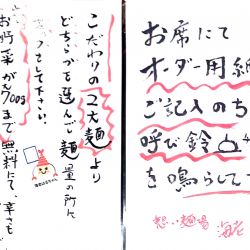 こだわりの2大麺より
どちらかを選んで麺量の所に
をして下さい。
お好み
700gまで無料にて、辛さも
お席にて
オーダー用紙
ご記入のち
呼び鈴
を鳴らして
想い麺場